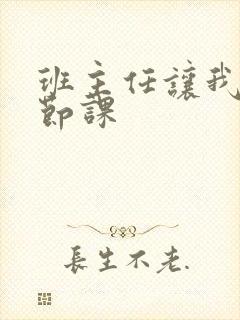 班主任讓我
節課
長生不老.